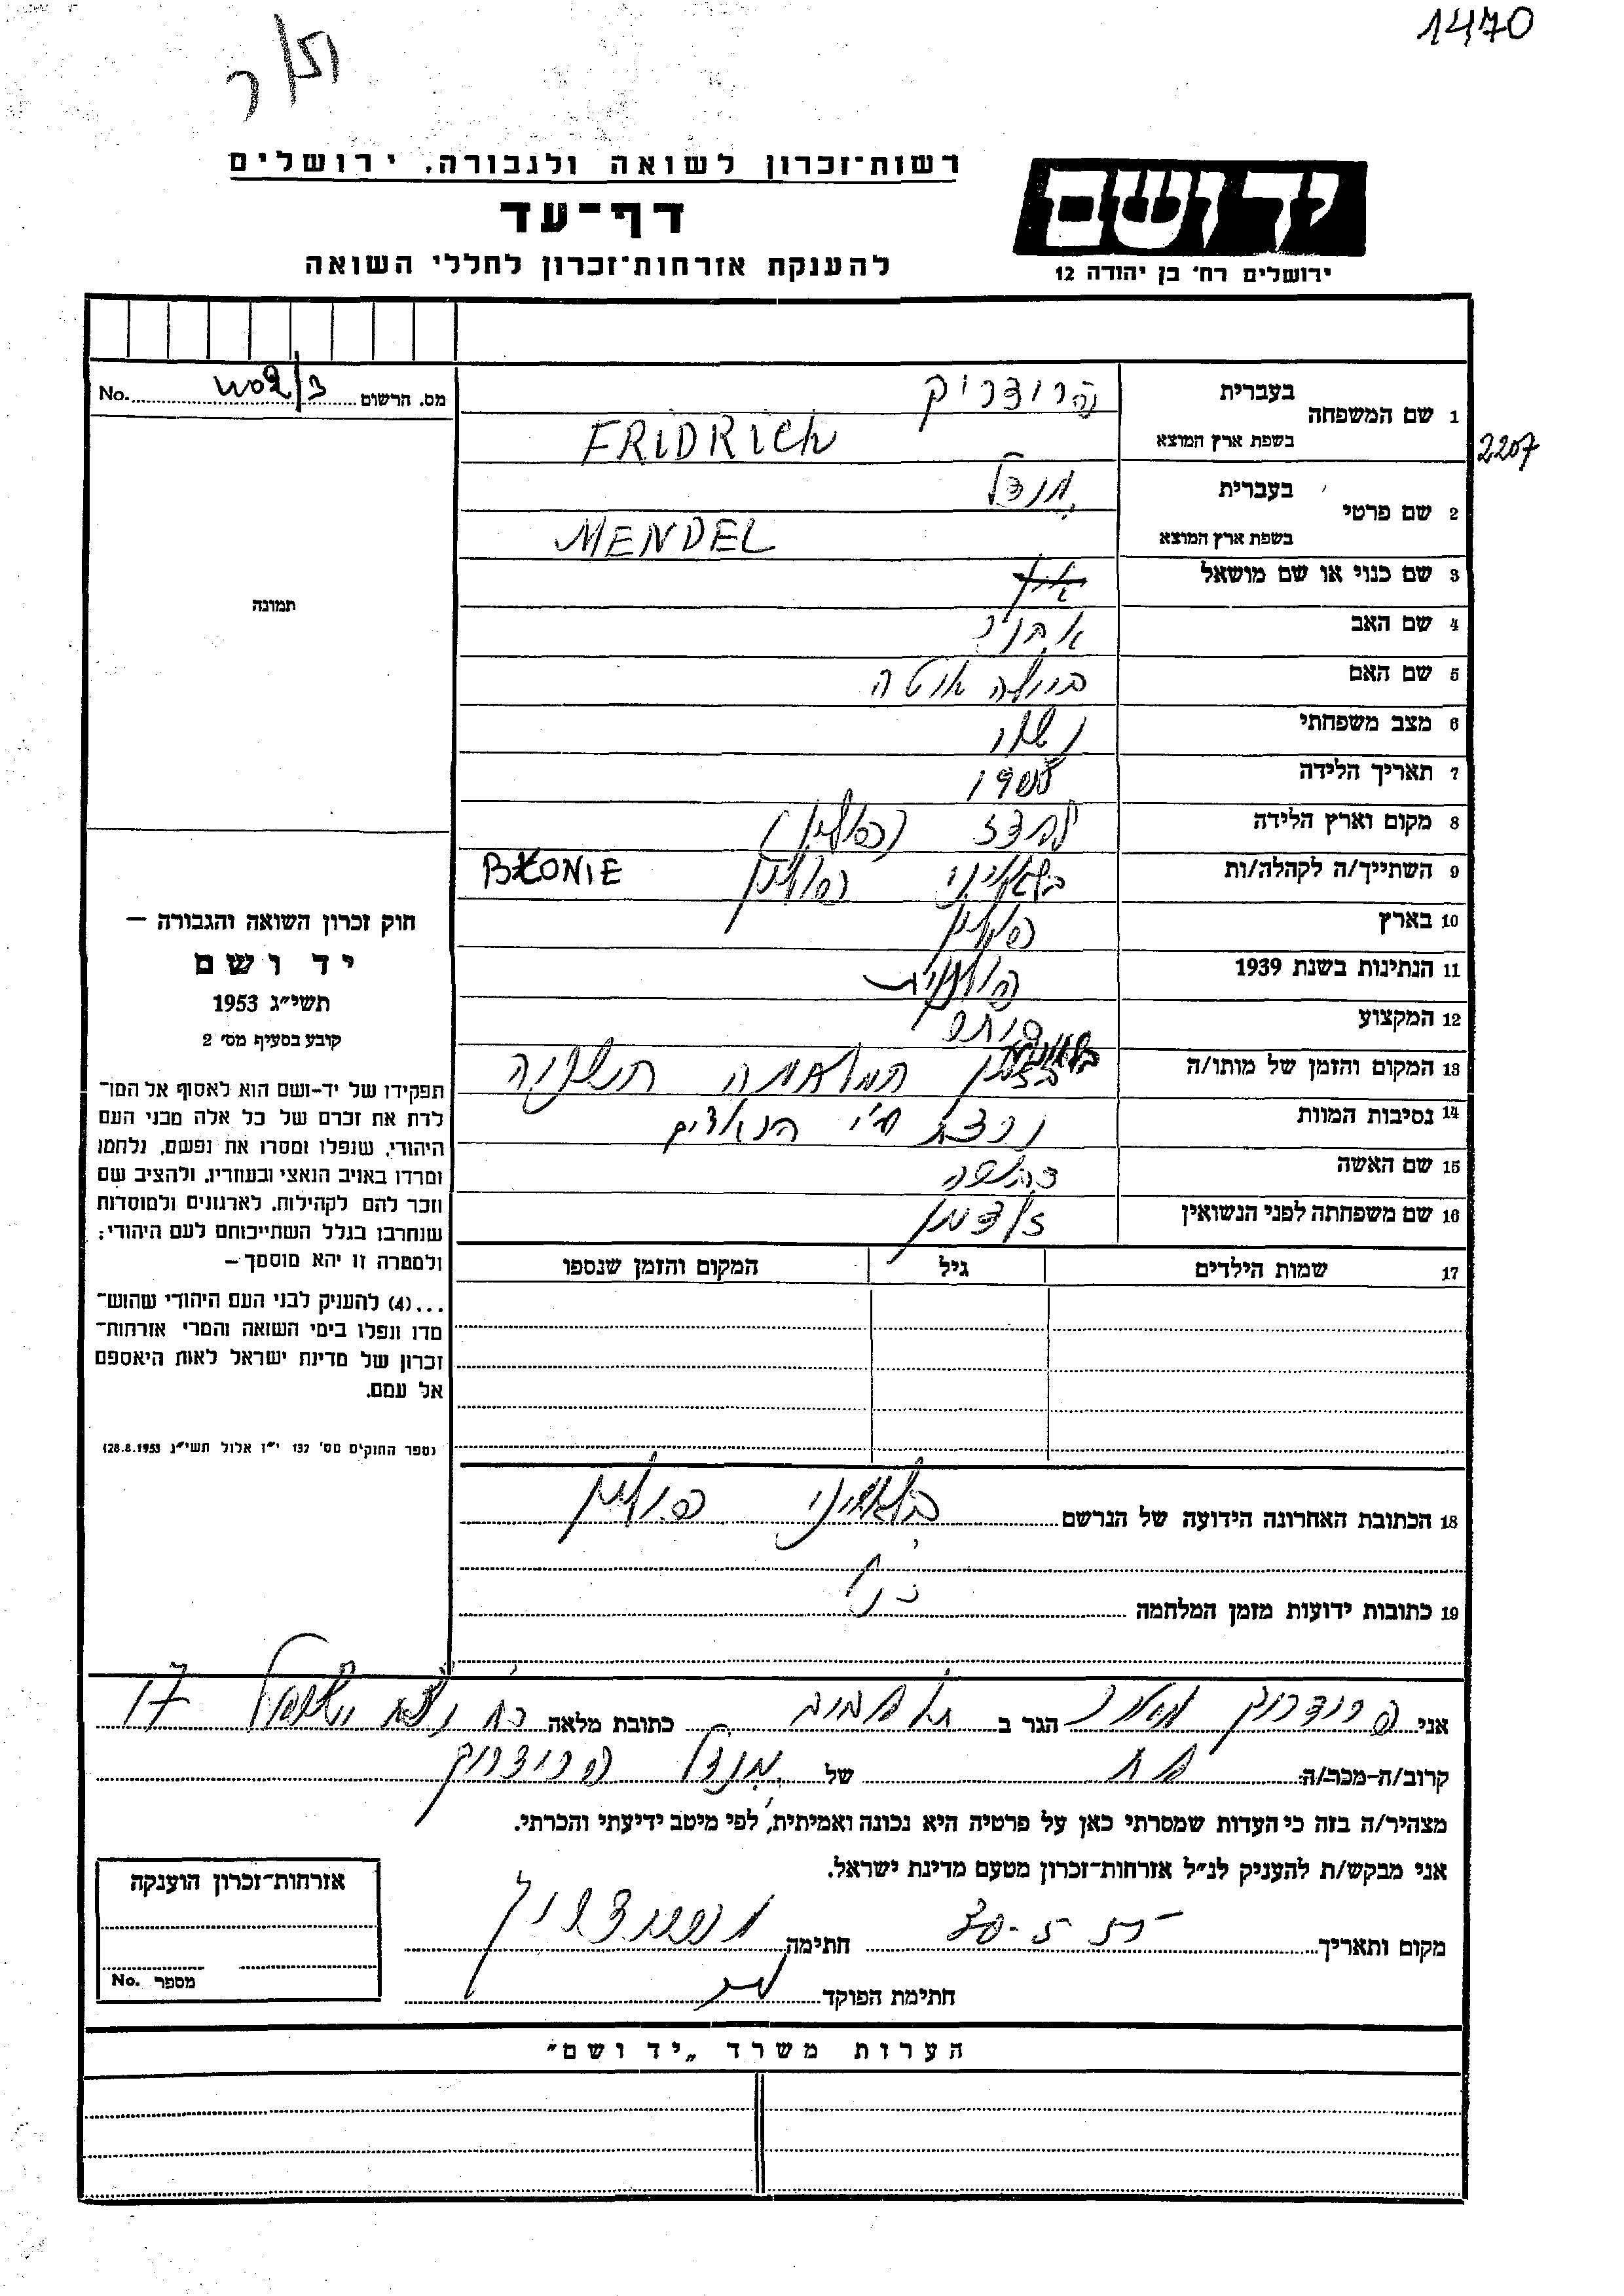 1470
רשות־זכרון לשואה ולגבורה, ירושלים
דף־עד
להענקת אזרחות־זכרון לחללי השואה
יד ושם
ירושלים רח' בן יהודה 12
מס. הרשום No.
תמונה
חוק זכרון השואה והגבורה –
יד ושם
תשי״ג 1953
קובע בסעיף מס׳ 2
תפקידו של יד-ושם הוא לאסוף אל המו־
לדת את זכרם של כל אלה מבני העם
היהודי, שנפלו ומסרו את נפשם, נלחמו
ומרדו באויב הנאצי ובעוזריו, ולהציב שם
וזכר להם לקהילות, לארגונים ולמוסדות
שנחרבו בגלל השתייכותם לעם היהודי;
ולמטרה זו יהא מוסמך –
...(4) להעניק לבני העם היהודי שהוש־
מדו ונפלו בימי השואה והמרי אזרחות־
זכרון של מדינת ישראל לאות היאספם
אל עמם.
(ספר החוקים מס׳ 132 י״ז אלול תשי״ג 28.8.1953)
1 שם המשפחה
בעברית פרידריק
בשפת ארץ המוצא FRIDRICH
2207
2 שם פרטי
בעברית מנדל
בשפת ארץ המוצא MENDEL
3 שם כנוי או שם מושאל
4 שם האב
5 שם האם
6 מצב משפחתי נשוי
7 תאריך הלידה
8 מקום וארץ הלידה (פולין)
9 השתייך/ה לקהלה/ות בלאוניה פולין BŁONIE
10 בארץ פולין
11 הנתינות בשנת 1939 פולנית
12 המקצוע סוחר
13 המקום והזמן של מותו/ה בזמן המלחמה השניה
14 נסיבות המוות נרצח ע״י הנאצים
15 שם האשה
16 שם משפחתה לפני הנשואין
17 שמות הילדים גיל המקום והזמן שנספו
18 הכתובת האחרונה הידועה של הנרשם פולין
19 כתובות ידועות מזמן המלחמה
אני פרידריך הגר ב תל אביב כתובת מלאה רח נצח ישראל 17
קרוב/ה-מכר/ה של מנדל פרידריך
מצהיר/ה בזה כי העדות שמסרתי כאן על פרטיה היא נכונה ואמיתית, לפי מיטב ידיעתי והכרתי.
אני מבקש/ת להעניק לנ״ל אזרחות־זכרון מטעם מדינת ישראל.
מקום ותאריך 30-5-55 חתימה
חתימת הפוקד
אזרחות־זכרון הוענקה
מספר No.
הערות משרד „יד ושם״